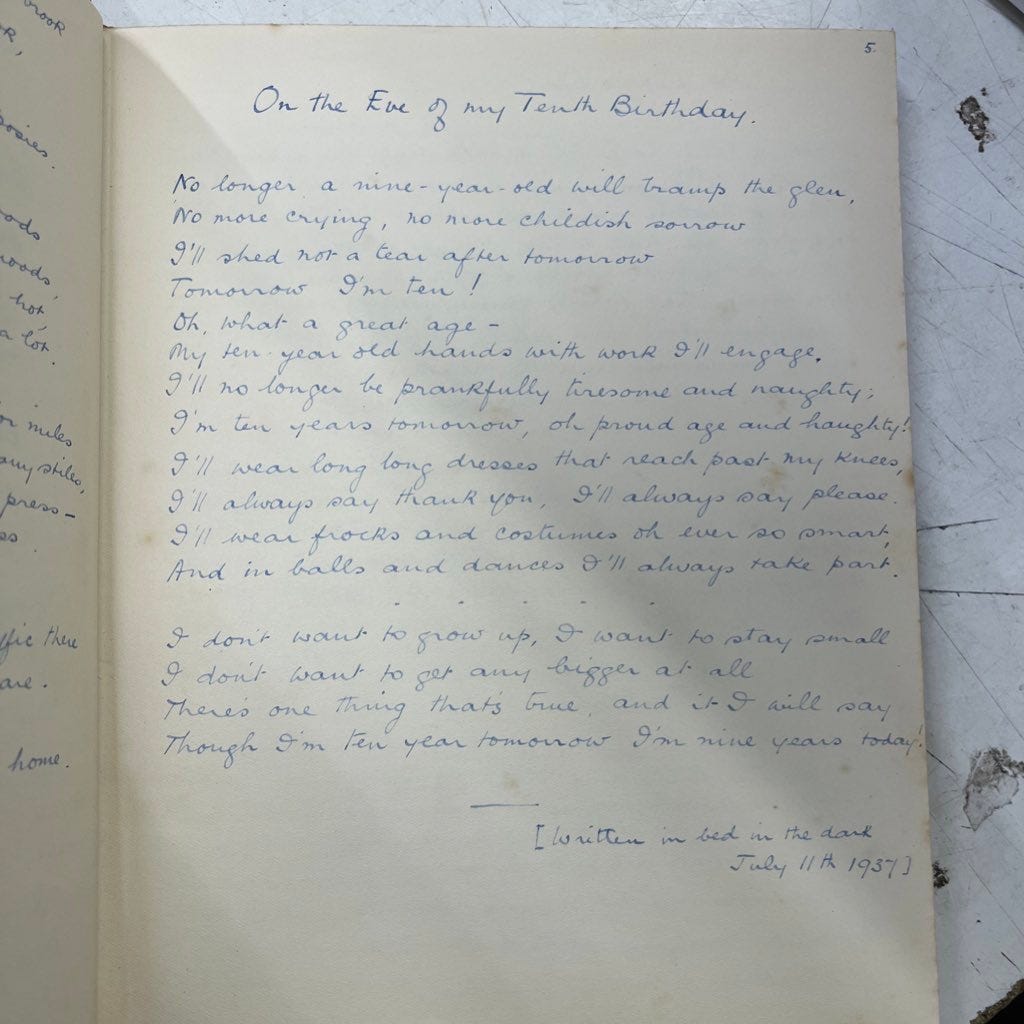 brook
posies.
hot
a lot.
or miles
any stiles,
press-
ffic there
are.
home.
5.
On the Eve of my Tenth Birthday.
No longer a nine-year-old will tramp the glen,
No more crying, no more childish sorrow
I'll shed not a tear after tomorrow
Tomorrow I'm ten!
Oh, what a great age -
My ten-year old hands with work I'll engage.
I'll no longer be prankfully tiresome and naughty;
I'm ten years tomorrow, oh proud age and haughty!
I'll wear long long dresses that reach past my knees,
I'll always say thank you, I'll always say please.
I'll wear frocks and costumes oh ever so smart,
And in balls and dances I'll always take part.
. . . . .
I don't want to grow up, I want to stay small
I don't want to get any bigger at all
There's one thing that's true, and it I will say
Though I'm ten year tomorrow I'm nine years today!
[Written in bed in the dark
July 11th 1937]